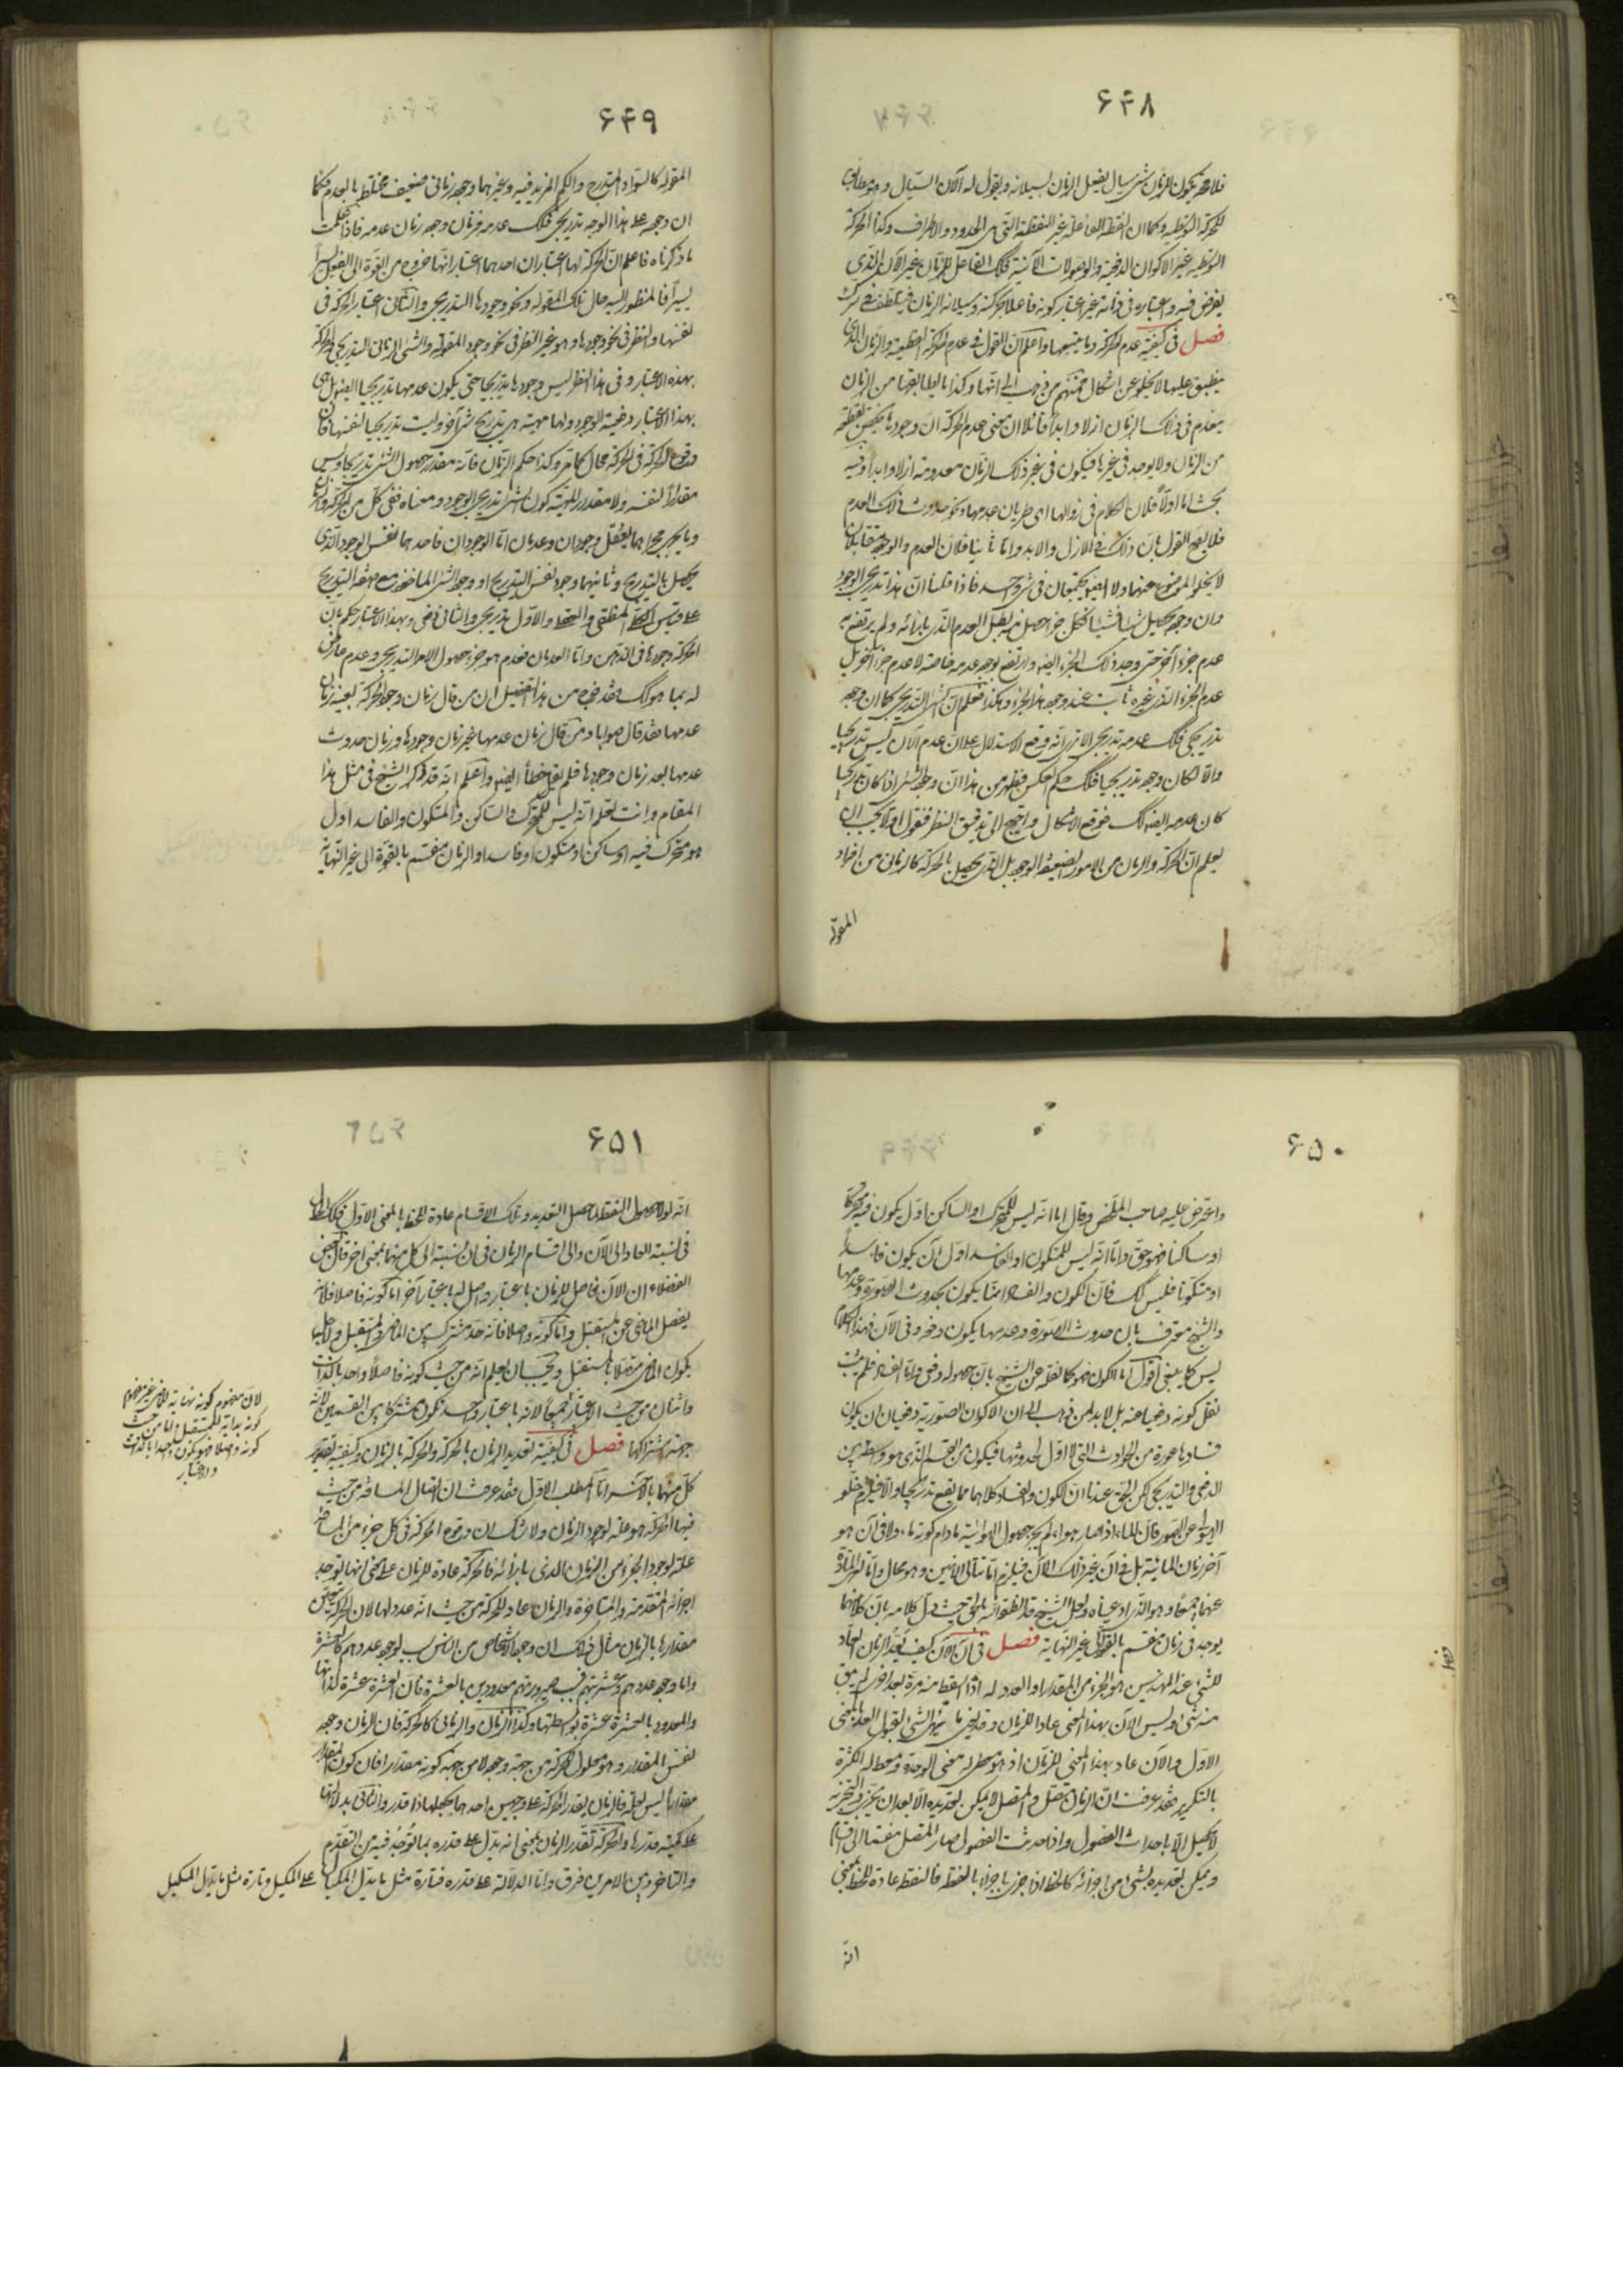 ۶۴۸
فلا محة يكون للزمان شئ سيال يفعل الزمان بسيلانه ويقول له الآن السيال وهو مطابق
للحركة التوسطية وكما ان النقطة الفاعلة غير النقطة التى هى الحدود والاطراف وكذا الحركة
التوسطية غير الاكوان الدفعية والوصولات الآنية فكك الفاعل للزمان غير الآن الذى
يفرض فيه واعتباره فى ذاته غير اعتبار كونه فاعلا بحركته وسيلانه الزمان
فصل فى كيفية عدم الحركة وما يتبعها واعلم ان القول فى عدم الحركة القطعية والزمان الذى
ينطبق عليها لا يخلو عن اشكال فمنهم من ذهب الى انها وكذا ما يطابقها من الزمان
ينعدم فى ذلك الزمان ازلا وابدا قائلا ان معنى عدم الحركة ان وجودها يختص بقطعة
من الزمان ولا يوجد فى غيرها فيكون فى غير ذلك الزمان معدومة ازلا وابدا وفيه
بحث اما اولا فلان الكلام فى زوالها اى طريان عدمها ونحو حدوث ذلك العدم
فلا يقع القول بان ذلك فى الازل والابد واما ثانيا فلان العدم والوجود متقابلان
لا يخلو الموضوع عنهما ولا ايضا يجتمعان فى شئ واحد فاذا قلنا ان هذا تدريجى الوجود
وان وجوده يحصل شيئا فشيئا فكل جزء حصل منه بطل العدم الذى بازائه ولم يرتفع به
عدم جزء آخر حتى وجد ذلك الجزء ايضا وارتفع بوجوده عدمه خاصة لا عدم جزء آخر بل
عدم الجزء الذى غيره ثابت عند وجود هذا الجزء وهكذا فعلم ان الشئ التدريجى كما ان وجوده
تدريجى فكك عدمه تدريجى الا ترى انه وقع الاستدلال على ان عدم الآن ليس تدريجيا
والا لكان وجوده تدريجيا فكك حكم العكس فظهر من هذا ان وجود الشئ اذا كان تدريجيا
كان عدمه ايضا كك فوقع الاشكال واحتيج الى تدقيق النظر فنقول اولا يجب ان
يعلم ان الحركة والزمان من الامور الضعيفة الوجود بل الذى يحصل بالحركة كالزمانى من افراد
المقولة
۶۴۹
المقولة كالسواد المتدرج والكم المزيد فيه وغيرهما وجوده زمانى ضعيف مختلط بالعدم فكما
ان وجوده على هذا الوجه تدريجى فكك عدمه فزمان وجوده زمان عدمه فاذا علمت
ما ذكرناه فاعلم ان الحركة لها اعتباران احدهما اعتبار انها خروج من القوة الى الفعل يسيرا
يسيرا فالمنظور اليه حال تلك المقولة ونحو وجودها التدريجى والثانى اعتبار الحركة فى
نفسها والنظر فى نحو وجودها وهو غير النظر فى نحو وجود المقولة والشئ الزمانى التدريجى فالحركة
بهذه الاعتبار وفى هذا النظر ليس وجودها تدريجيا حتى يكون عدمها تدريجيا ايضا بل هى
بهذا الاعتبار دفعية الوجود ولها مهية هى تدريج شئ آخر وليست تدريجيا لنفسها فان
وقوع الحركة فى الحركة محال كما مر وكذا حكم الزمان فانه مقدر حصول الشئ تدريجا وليس
مقدارا لنفسه ولا مقدار المهية كون الشئ تدريجى الوجود ومعناه ففى كل من الحركة والزمان
وما يجرى مجراهما يعقل وجودان وعدمان اما الوجودان فاحدهما نفس الوجود الذى
يحصل بالتدريج وثانيهما وجود نفس التدريج او وجود الشئ الماخوذ مع صفة التدريج
على قياس الكلى المنطقى والعقلى والاول تدريجى والثانى دفعى وبهذا الاعتبار حكم بان
الحركة وجودها فى الذهن واما العدمان فعدم هو جزء حصول الامر التدريجى وعدم عارض
له بما هو كك وقد خرج من هذا التفصيل ان من قال زمان وجود الحركة بعينه زمان
عدمها فقد قال صوابا ومن قال زمان عدمها غير زمان وجودها وزمان حدوث
عدمها بعد زمان وجودها فلم يقل خطأ ايضا واعلم انه قد ذكر الشيخ فى مثل هذا
المقام وانت تعلم انه ليس للمتحرك والساكن والمتكون والفاسد اول
هو متحرك فيه او ساكن او متكون او فاسد والزمان منقسم بالقوة الى غير النهاية
۶۵۰
واعترض عليه صاحب الملخص وقال اما انه ليس للمتحرك او الساكن اول يكون فيه متحركا
او ساكنا فهو حق واما انه ليس للمتكون او الفاسد اول آن يكون فاسدا
او متكونا فليس كك فان الكون والفساد انما يكون بحدوث الصورة وعدمها
والشيخ معترف بان حدوث الصورة وعدمها يكون دفعة وفى الآن فهذا الكلام
ليس كما ينبغى اقول اما الكون فهو كما نقله عن الشيخ بان حصوله دفعى واما الفساد فلم يثبت
نقل كونه دفعيا عنه بل لابد لمن ذهب الى ان الاكوان الصورية دفعيات ان يكون
فسادها عنده من الحوادث التى لا اول لحدوثها فيكون من القسم الذى هو وسط بين
الدفعى والتدريجى لكن الحق عندنا ان الكون والفساد كلاهما مما يقع تدريجيا والا فيلزم خلو
الهيولى عن الصور فان الماء اذا صار هواء لم يجز حصول الهوائية مادام كونه ماء ولا فى آن هو
آخر زمان المائية بل فى آن غير ذلك الآن فيلزم اما تتالى الآنين وهو محال واما تعرى المادة
عنهما جميعا وهو الذى ادعيناه ولعل الشيخ قد تفطن انه الحق حيث ذيل كلامه بان كلاهما
يوجد فى زمان منقسم بالقوة الى غير النهاية فصل فى ان الآن كيف يعد الزمان العاد
للشئ عند المهندسين هو الجزء من المقدار او العدد له اذا اسقط منه مرة بعد اخرى لم يبق
منه شئ وليس الآن بهذا المعنى عادا للزمان وقد يعنى ما يهيئ الشئ لقبول العد بالمعنى
الاول والآن عاد بهذا المعنى للزمان اذ هو معطى له معنى الوحدة ومعطاه الكثرة
بالتكرير فقد عرفت ان الزمان متصل والمتصل لا يمكن تعديده الا بعد ان يتجزى والتجزية
لا تحصل الا باحداث الفصول واذا حدثت الفصول صار المتصل منقسما الى اقسام
ويمكن تعديده بشئ من اجزائه كالخط اذا جزئ باجزاء بالنقط فالنقط عادة للخط بمعنى
انه
۶۵۱
انه لولا حصول النقط لما حصل التعديد وتلك الاقسام عادة للخط بالمعنى الاول فكك الحال
فى نسبة العاد الى الآن والى اقسام الزمان فى ان نسبته الى كل منهما بمعنى آخر قال بعض
الفضلاء ان الآن فاصل للزمان باعتبار واصل له باعتبار آخر اما كونه فاصلا فلانه
يفصل الماضى عن المستقبل واما كونه واصلا فانه حد مشترك بين الماضى والمستقبل ولاجله
يكون الماضى متصلا بالمستقبل ويجب ان يعلم انه من حيث كونه فاصلا واحد بالذات
واثنان من حيث الاعتبار جميعا لانه باعتبار واحد يكون مشتركا بين القسمين لانه
جهة اشتراكهما فصل فى كيفية تعديد الزمان بالحركة والحركة بالزمان وكيفية تقدير
كل منهما بالآخر اما المطلب الاول فقد عرفت ان اتصال المسافة من حيث
فيها الحركة هو علة لوجود الزمان ولا شك ان وقوع الحركة فى كل جزء من المسافة
علة لوجود الجزء من الزمان الذى بازائه فالحركة عادة للزمان على معنى انها توجد
اجزائه المتقدمة والمتاخرة والزمان عاد للحركة من حيث انه عدد لها لان الحركة يتعين
مقدارها بالزمان مثال ذلك ان وجود الاشخاص من الناس سبب لوجود عددهم كالعشرة
واما وجود عددهم وعشريتهم فسبب صيرورتهم معدودين بالعشرة فان العشرة عشرة لذاتها
والمعدود بالعشرة عشرة بواسطتها وكذا الزمان والزمانى كالحركة فان الزمان وجوده
نفس المقدار وهو معلول الحركة من جهة وجوده لا من جهة كونه مقدارا فان كون المقدار
مقدارا ليس لعلة فالزمان يقدر الحركة على وجهين احدهما بجعلها ذا قدر والثانى بدلالتها
على كمية قدرها والحركة تقدر الزمان بمعنى انه تدل على قدره بما يوجد فيه من التقدم
والتاخر وبين الامرين فرق واما الدلالة على قدره فتارة مثل ما يدل المكيال على المكيل وتارة مثل ما يدل المكيل
لان مفهوم كونه نهاية للماضى غير مفهوم
كونه بداية للمستقبل واما من حيث
كونه واصلا فهو يكون واحدا بالذات
والاعتبار